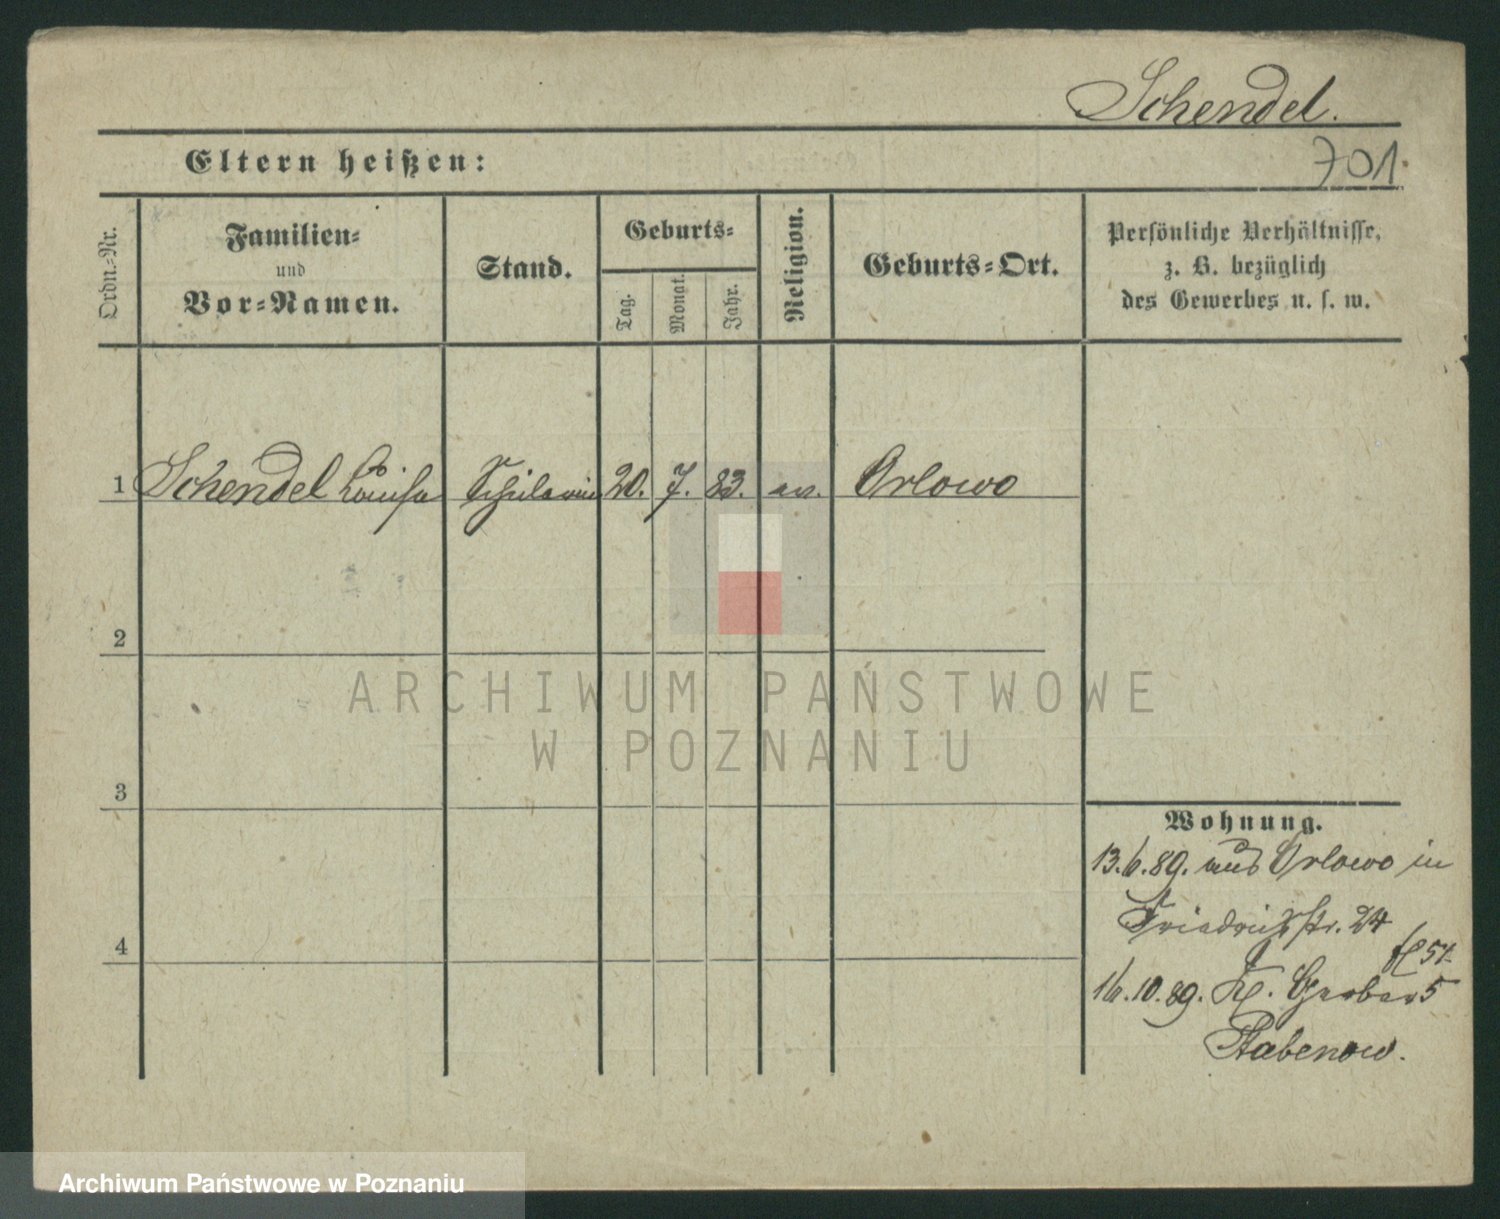 Schendel.
701.
Eltern heißen:
Ordn.-Nr.
Familien-
und
Vor-Namen.
Stand.
Geburts-
Tag.
Monat.
Jahr.
Religion.
Geburts-Ort.
Persönliche Verhältnisse,
z. B. bezüglich
des Gewerbes u. s. w.
1 Schendel Louisa Schülerin 20. 7. 83. ev. Orlowo
2
3
4
Wohnung.
13.6.89. aus Orlowo in
Friedrichstr. 24
16.10.89. Kl. Gerber 5
Stabenow.
ARCHIWUM PAŃSTWOWE
W POZNANIU
Archiwum Państwowe w Poznaniu